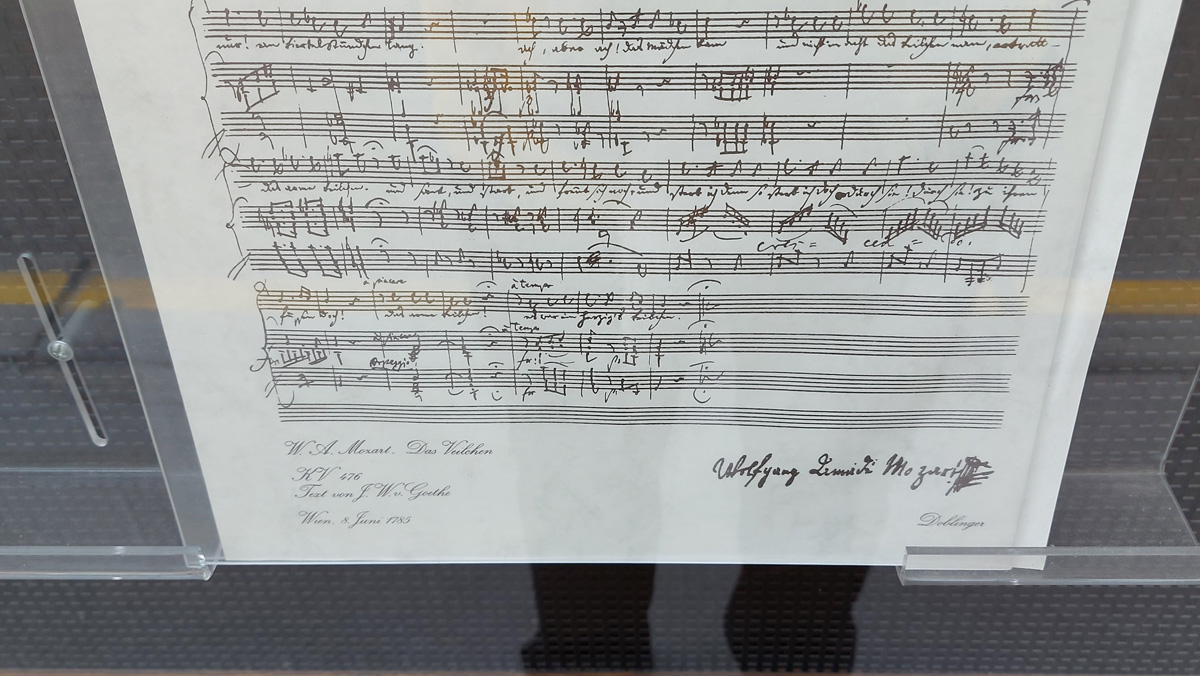 nur! ein Viertelstündchen lang.   ach, aber ach! das Mädchen kam   und nicht in acht das Veilchen nam, ertratt-
das arme Veilchen. und sank, und starb, und freut sich noch: und sterb ich denn so sterb ich doch durch sie! durch sie! zu ihren
à piacere   à tempo
füssen doch!   das arme Veilchen!   es war ein herzig's Veilchen.
cres = cen = do.
à tempo
Arpeggio
W. A. Mozart - Das Veilchen
KV 476
Text von J. W. v. Goethe
Wien, 8. Juni 1785
Wolfgang Amadè Mozart
Doblinger